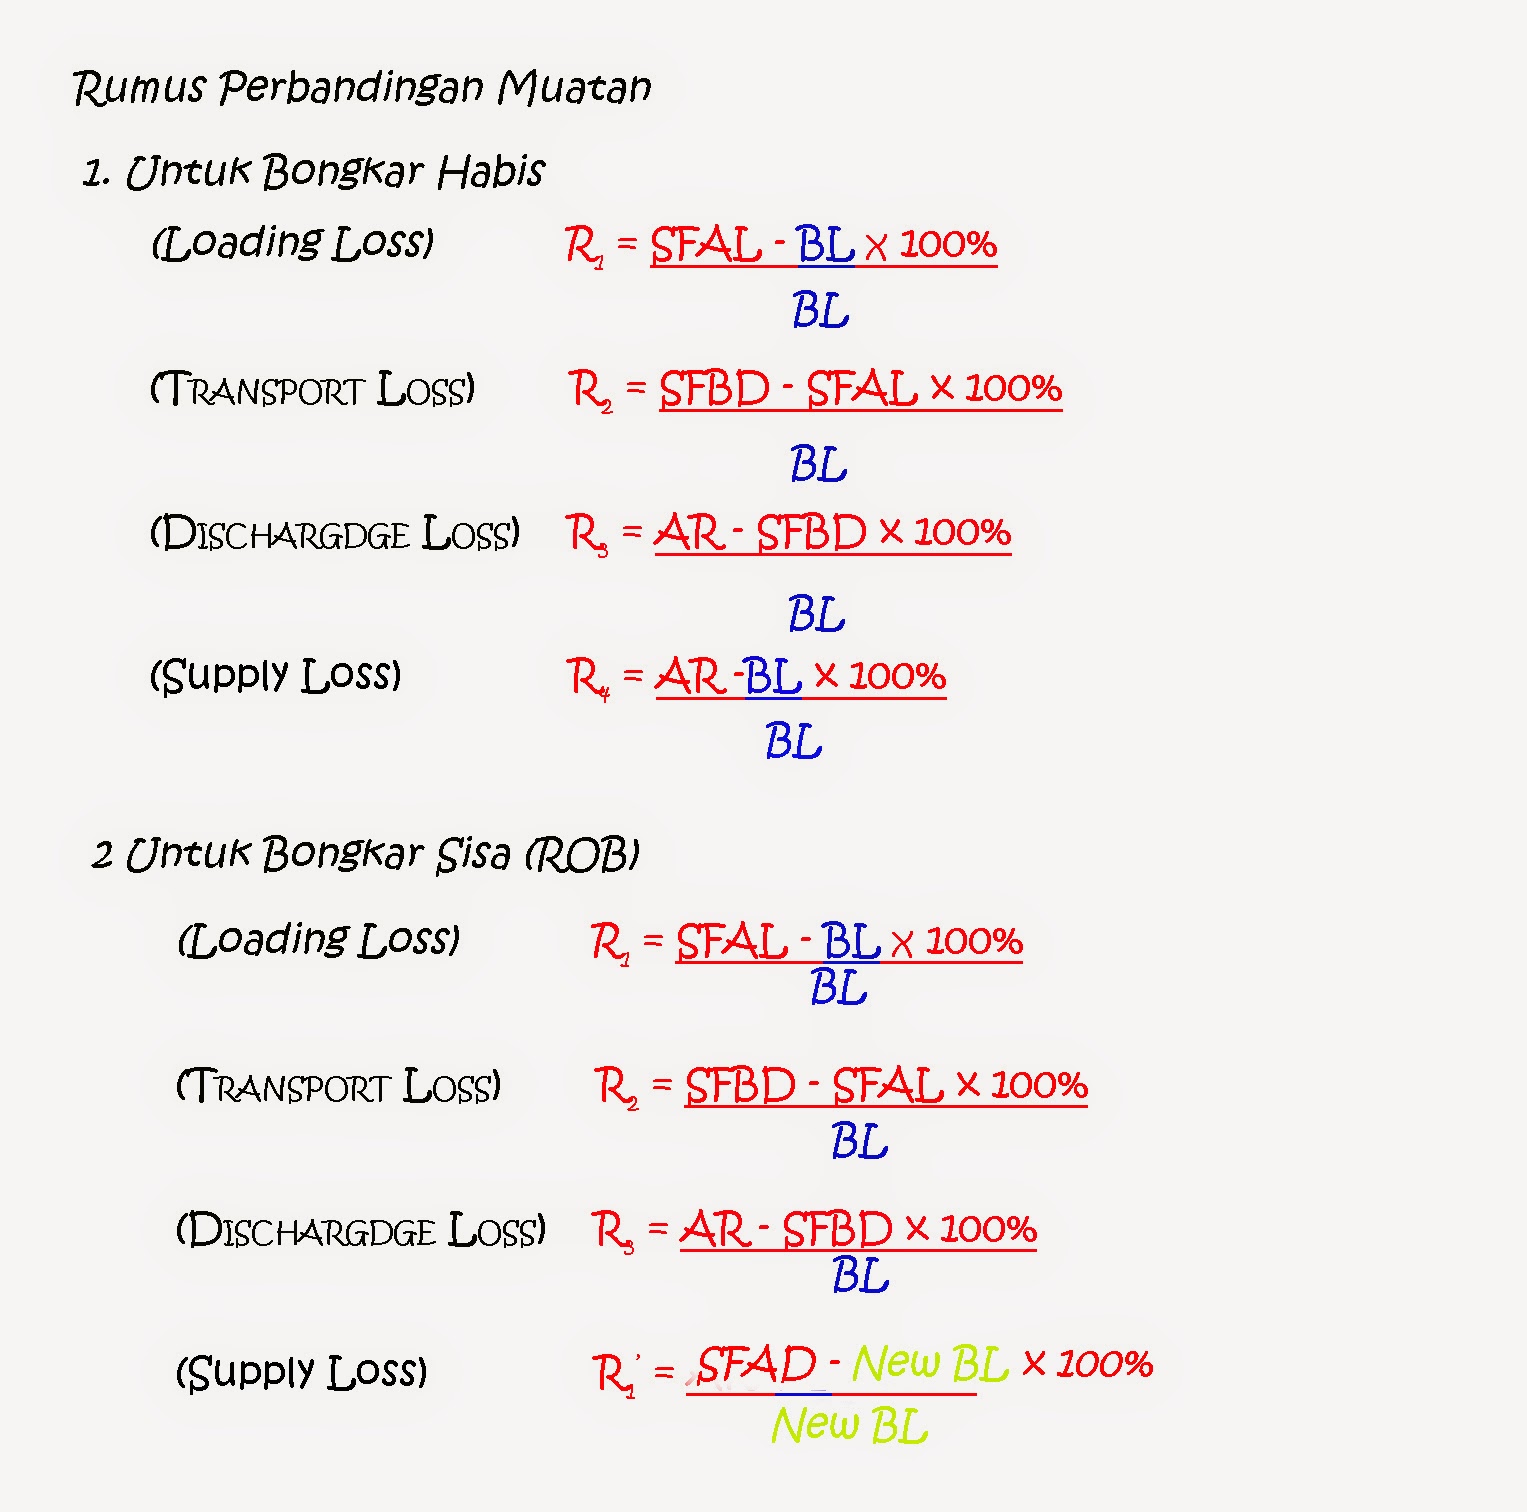 Rumus Perbandingan Muatan
1. Untuk Bongkar Habis
(Loading Loss) R1 = SFAL - BL x 100%
BL
(TRANSPORT LOSS) R2 = SFBD - SFAL x 100%
BL
(DISCHARGDGE LOSS) R3 = AR - SFBD x 100%
BL
(Supply Loss) R4 = AR -BL x 100%
BL
2 Untuk Bongkar Sisa (ROB)
(Loading Loss) R1 = SFAL - BL x 100%
BL
(TRANSPORT LOSS) R2 = SFBD - SFAL x 100%
BL
(DISCHARGDGE LOSS) R3 = AR - SFBD x 100%
BL
(Supply Loss) R1' = SFAD - New BL x 100%
New BL